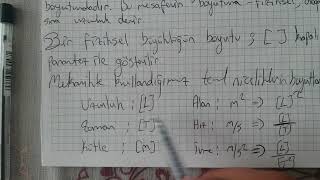 boyutundadır. Bu mesafenin boyutuna fiziksel
uzunluk denir.
Bir fiziksel büyüklüğün boyutu ; [ ] kapalı
parantez ile gösterilir.
Mekanikte kullandığımız temel niceliklerin boyutları
Uzunluk ; [L] Alan ; m² => [L]²
Zaman ; [T] Hız ; m/s => [L]/[T]
Kütle ; [M] İvme ; m/s² => [L]/[T]²